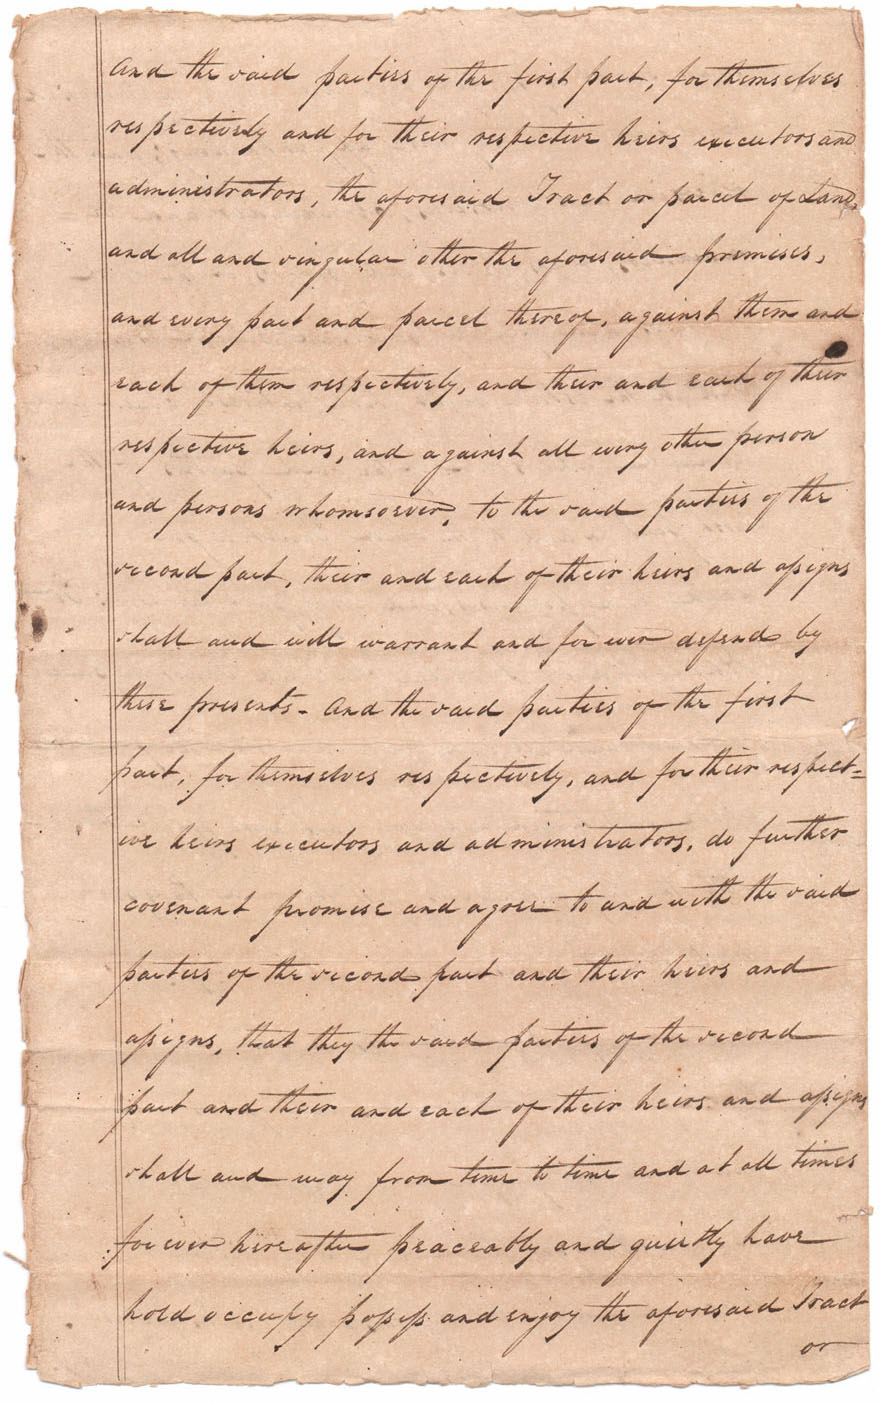 And the said parties of the first part, for themselves
respectively and for their respective heirs executors and
administrators, the aforesaid Tract or parcel of Land,
and all and singular other the aforesaid premises,
and every part and parcel thereof, against them and
each of them respectively, and their and each of their
respective heirs, and against all every other person
and persons whomsoever, to the said parties of the
second part, their and each of their heirs and assigns
shall and will warrant and for ever defend by
these presents - And the said parties of the first
part, for themselves respectively, and for their respect=
ive heirs executors and administrators, do further
covenant promise and agree to and with the said
parties of the second part and their heirs and
assigns, that they the said parties of the second
part and their and each of their heirs and assigns
shall and may from time to time and at all times
for ever hereafter peaceably and quietly have
hold occupy possess and enjoy the aforesaid Tract
or